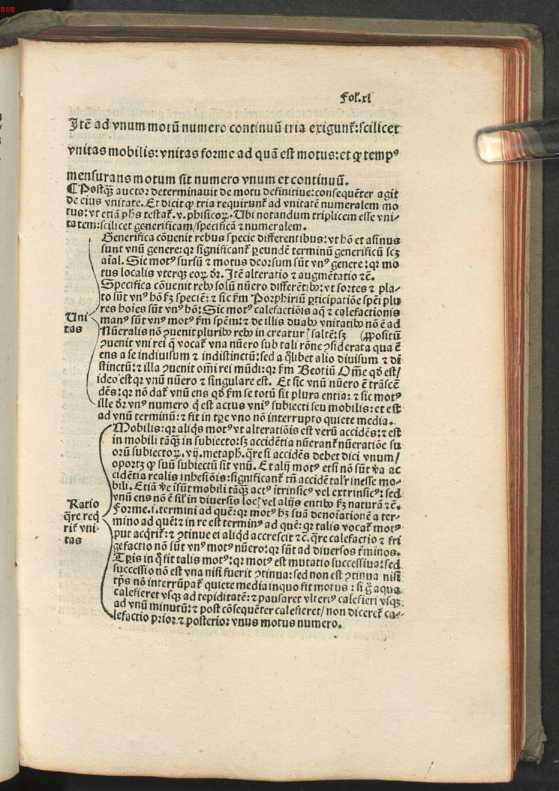 Fol.xl
Itē ad vnum motū numero continuū tria exigunt̄:scilicet
vnitas mobilis:vnitas forme ad quā est motus:et ꝙ tempꝰ
mensurans motum sit numero vnum et continuū.
¶Postꝙ̄ auctor determinauit de motu definitiue:consequēter agit
de eius vnitate. Et dicit ꝙ tria requirunt̄ ad vnitatē numeralem mo
tus:vt etiā ph̄s testat̄.v.phisicoꝝ. Ubi notandum triplicem esse vni
tatem:scilicet generificam/specificā ⁊ numeralem.
Generifica cōuenit rebus specie differentibus:vt hō et asinus
sunt vnū genere:qr significant̄ ꝑ eundē terminū generificū scꝫ
aīal. Sic motꝰ sursū ⁊ motus deorsum sūt vnꝰ genere:qr mo
tus localis vterqꝫ eoꝝ dr̄. Itē alteratio ⁊ augmētatio ⁊c̄.
Specifica cōuenit rebꝰ solū nūero differētibꝰ:vt sortes ⁊ pla-
to sūt vnꝰ hō ẜm speciē: ⁊ sic ẜm Porphiriū ꝑticipatiōe spēi plu
res hoīes sūt vnꝰ hō: Sic motꝰ calefactiōis aq̄ ⁊ calefactionis
manꝰ sūt vnꝰ motꝰ ẜm spēm: ⁊ de illis duabꝰ vnitatibꝰ nō ē ad
Uni
tas
Nūeralis nō ꝯuenit pluribꝰ rebꝰ in creatur̄ saltē:sꝫ (ꝓpositū
ꝯuenit vni rei q̄ vocat̄ vna nūero sub tali rōne ꝯsiderata qua ē
ens a se indiuisum ⁊ indistinctū:sed a q̄libet alio diuisum ⁊ di
stinctū: ⁊ illa ꝯuenit om̄i rei mūdi:qr ẜm Boetiū Om̄e qd̄ est/
ideo est qr vnū nūero ⁊ singulare est. Et sic vnū nūero ē trāscē
dēs:qr nō dat̄ vnū ens qd̄ ẜm se totū sit plura entia: ⁊ sic motꝰ
ille dr̄ vnꝰ numero q̄ est actus vniꝰ subiecti seu mobilis:et est
ad vnū terminū: ⁊ fit in tꝑe vno nō interrupto quiete media.
Mobilis:qr aliqs motꝰ vt alteratiōis est verū accidēs: ⁊ est
in mobili tāqꝫ in subiecto:sꝫ accidētia nūerant̄ nūeratiōe su
oꝝ subiectoꝝ.vij.metaph.q̄re si accidēs debet dici vnum/
oportꝫ ꝙ suū subiectū sit vnū. Et alij motꝰ etsi nō sūt v̄a ac
cidētia realis inhesiōis:significant̄ tn̄ accidētalr̄ inesse mo-
bili. Etiā v̄e īsūt mobili tāqꝫ actꝰ itrinsicꝰ vel extrinsicꝰ:sed
vnū ens nō ē sil̄ in diuersis locꝭ vel alijs entibꝰ ẜm naturā ⁊c̄.
Ratio
q̄re req̄
rit̄ vni
tas
Forme.i.termini ad quē:qr motꝰ hꝫ suā denoīationē a ter-
mino ad quē: ⁊ in re est terminꝰ ad quē:qr talis vocat̄ motꝰ
pur acq̄rit̄: ⁊ ꝯtinue ei aliqd accrescit ⁊c̄. q̄re calefactio ⁊ fri
gefactio nō sūt vnꝰ motꝰ nūero:qr sūt ad diuersos t̄minos.
Tꝑis in q̄ fit talis motꝰ:qr motꝰ est mutatio successiua:sed
successio nō est vna nisi fuerit ꝯtinua:sed non est ꝯtinua nisi
tp̄s nō interrūpat̄ quiete media in quo fit motus: si g̊ aqua
calefieret vsqꝫ ad tepiditatē: ⁊ pausaret vlteriꝰ calefieri vsqꝫ
ad vnū minutū: ⁊ post cōseq̄uēter calefieret/non diceret̄ ca-
lefactio prior ⁊ posterior vnus motus numero.